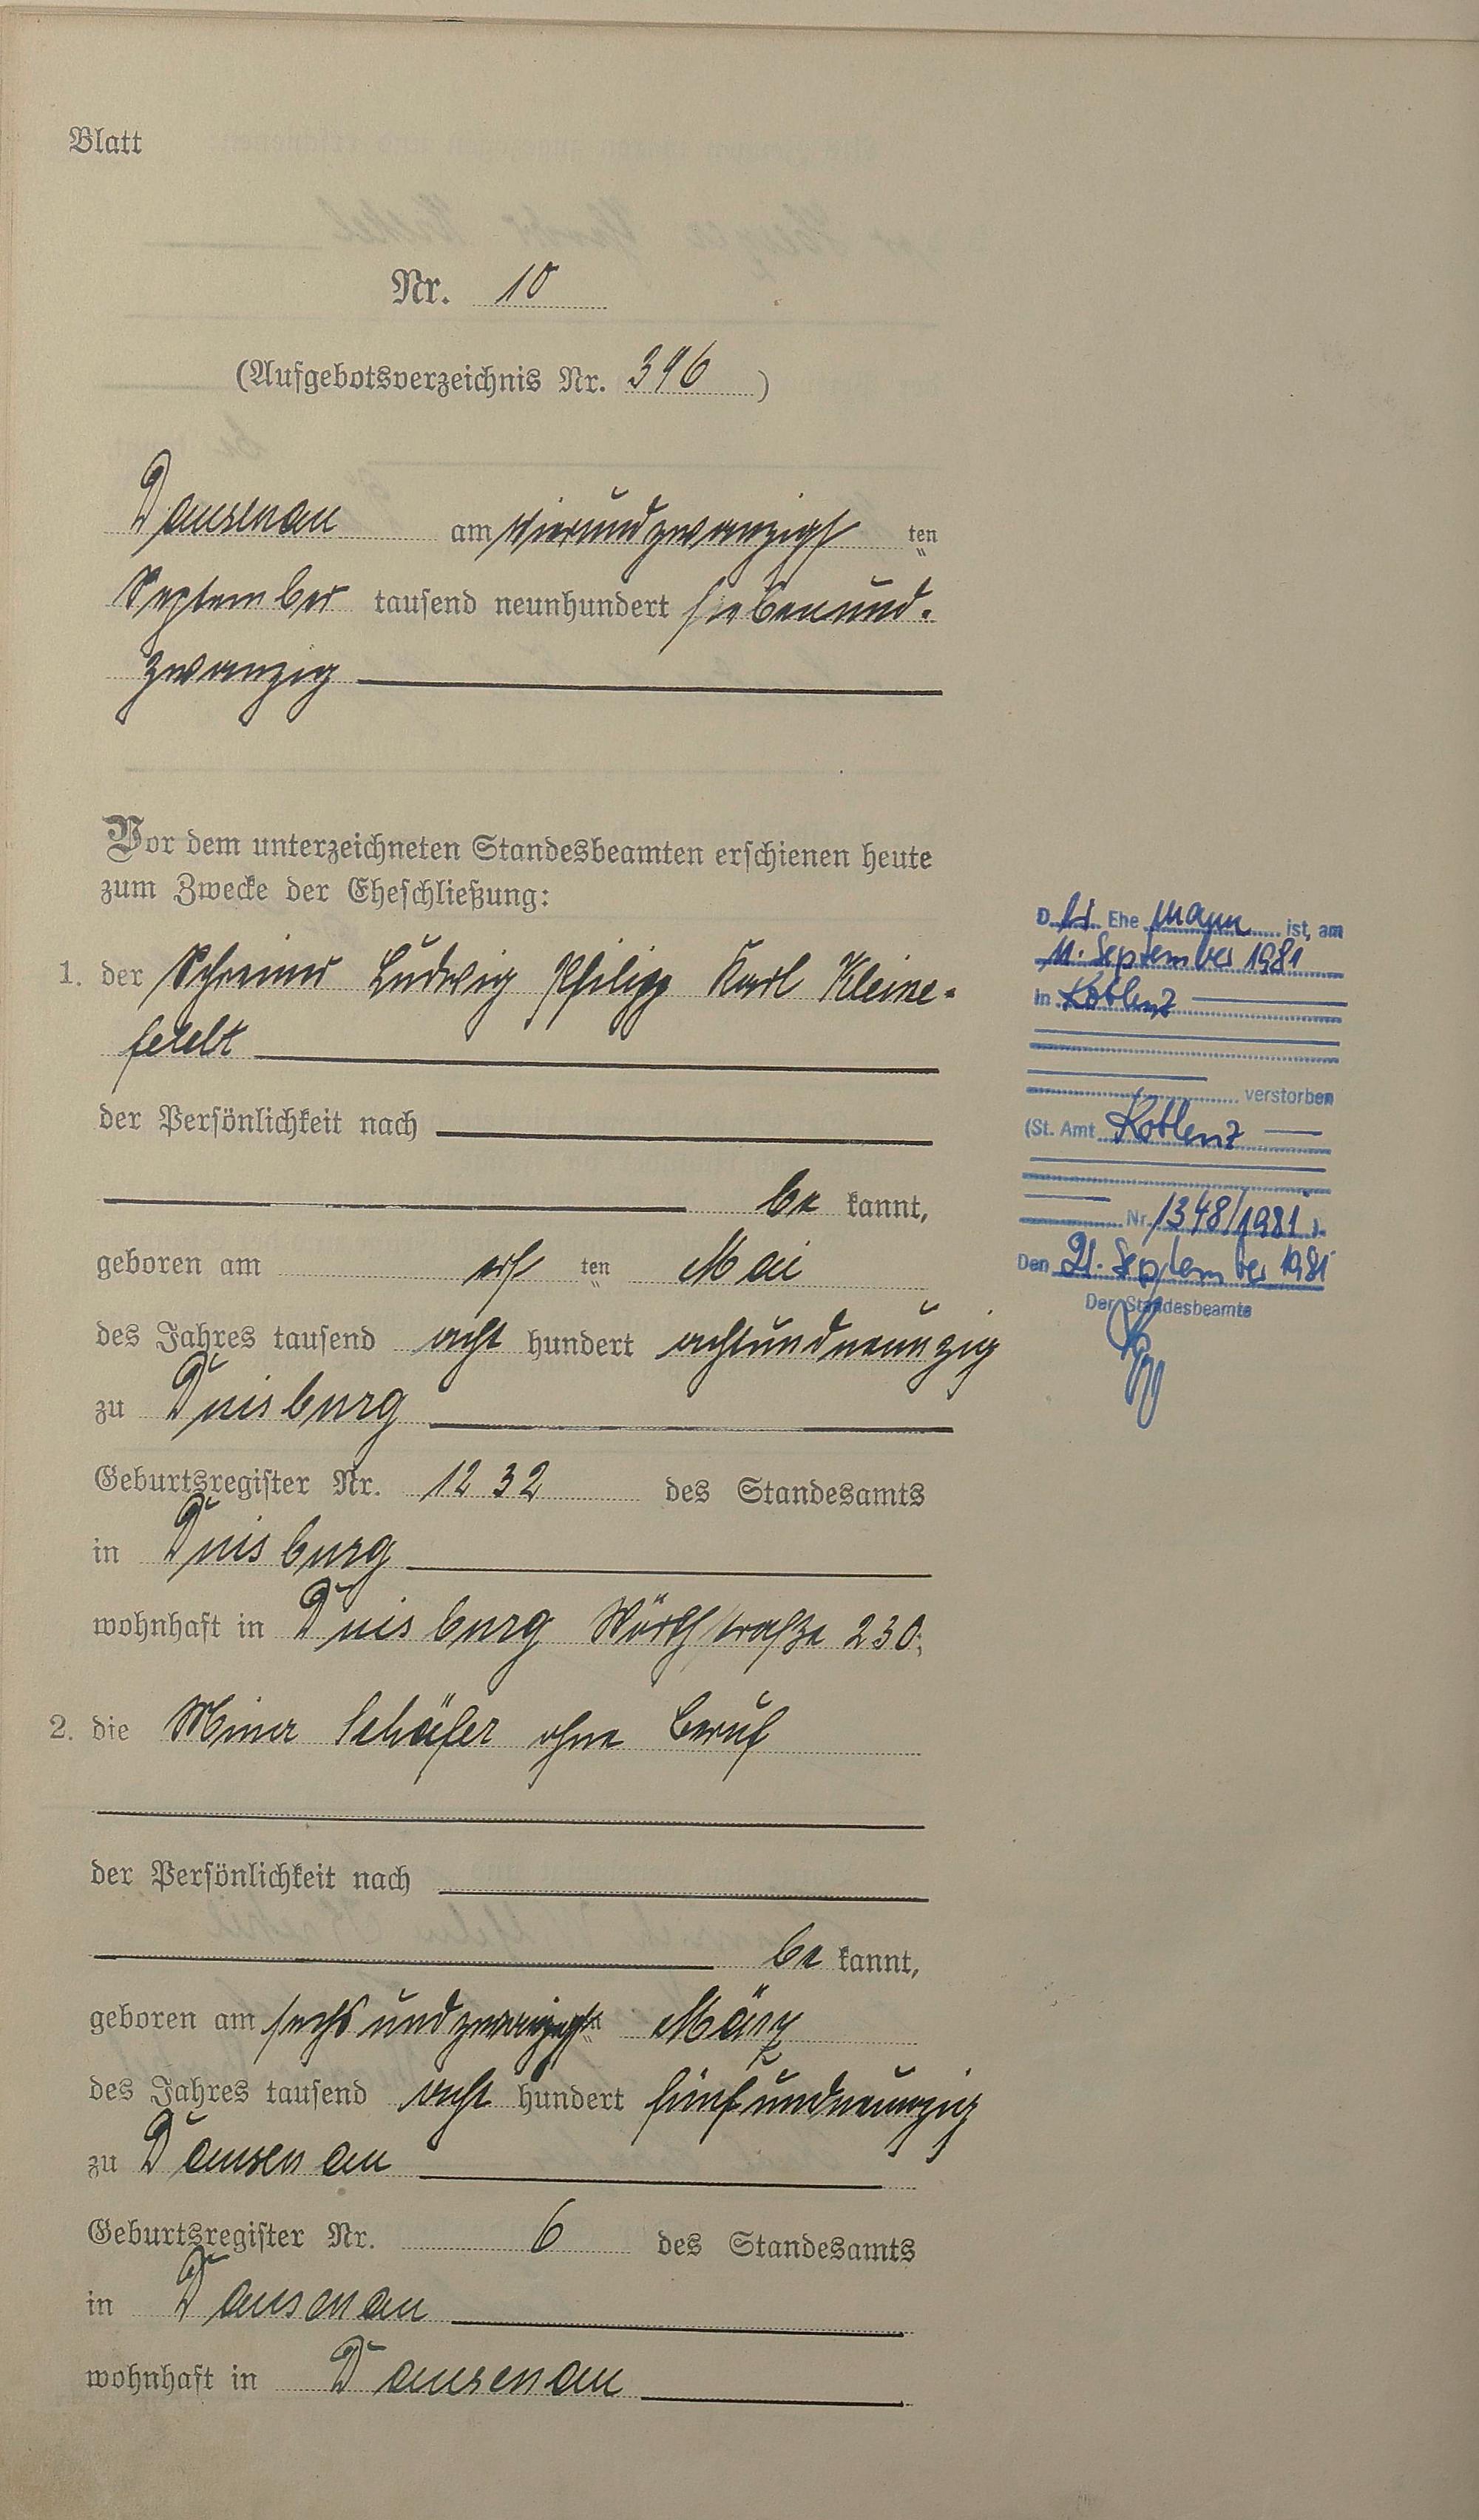 Blatt
Nr. 10
(Aufgebotsverzeichnis Nr. 396)
Dausenau am vierundzwanzigsten
September tausend neunhundert siebenund-
zwanzig
Vor dem unterzeichneten Standesbeamten erschienen heute
zum Zwecke der Eheschließung:
1. der Schreiner Ludwig Philipp Karl Kleine-
feldt
der Persönlichkeit nach
be kannt,
geboren am ersten Mai
des Jahres tausend acht hundert achtundneunzig
zu Duisburg
Geburtsregister Nr. 1232 des Standesamts
in Duisburg
wohnhaft in Duisburg Wörthstraße 230;
2. die Mina Schäfer ohne Beruf
der Persönlichkeit nach
be kannt,
geboren am sechsundzwanzigsten März
des Jahres tausend acht hundert fünfundneunzig
zu Dausenau
Geburtsregister Nr. 6 des Standesamts
in Dausenau
wohnhaft in Dausenau
D. er Ehe mann ist, am
11. September 1981
in Koblenz
verstorben
(St. Amt Koblenz
Nr. 1348/1981).
Den 21. September 1981
Der Standesbeamte